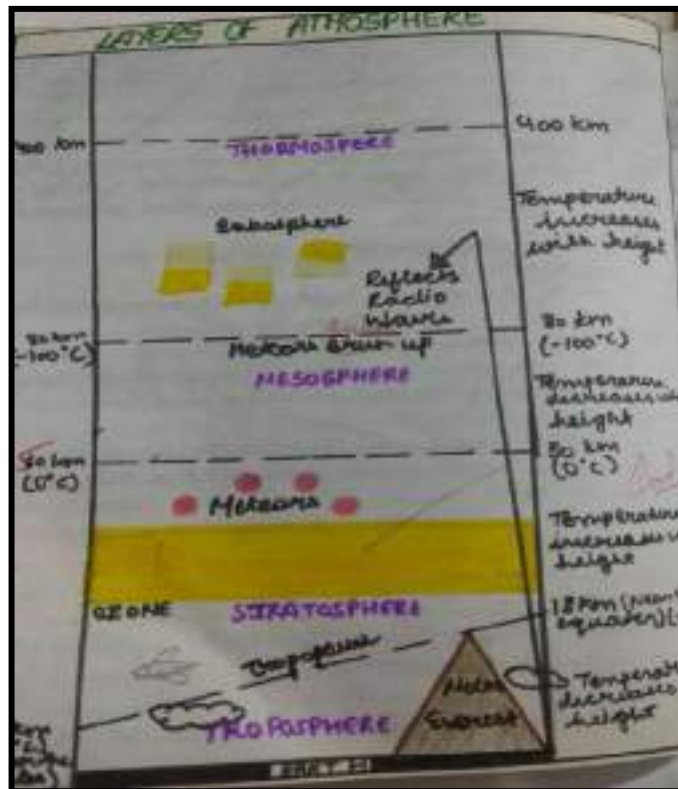 LAYERS OF ATHOSPHERE
400 km
400 km
THORMOSPERE
Temperature
increases
with height
Reflects
Radio
Waves
80 km
(-100°C)
80 km
(-100°C)
Meteors Brun up
MESOSPHERE
Temperature
decreases
height
50 km
(0°C)
(0°C)
Meteors
Temperature
increases
height
OZONE
STRATOSPHERE
18 Km (Near
equater)
Tropopause
Temperat
decreases
height
Everest
TROPOSPHERE